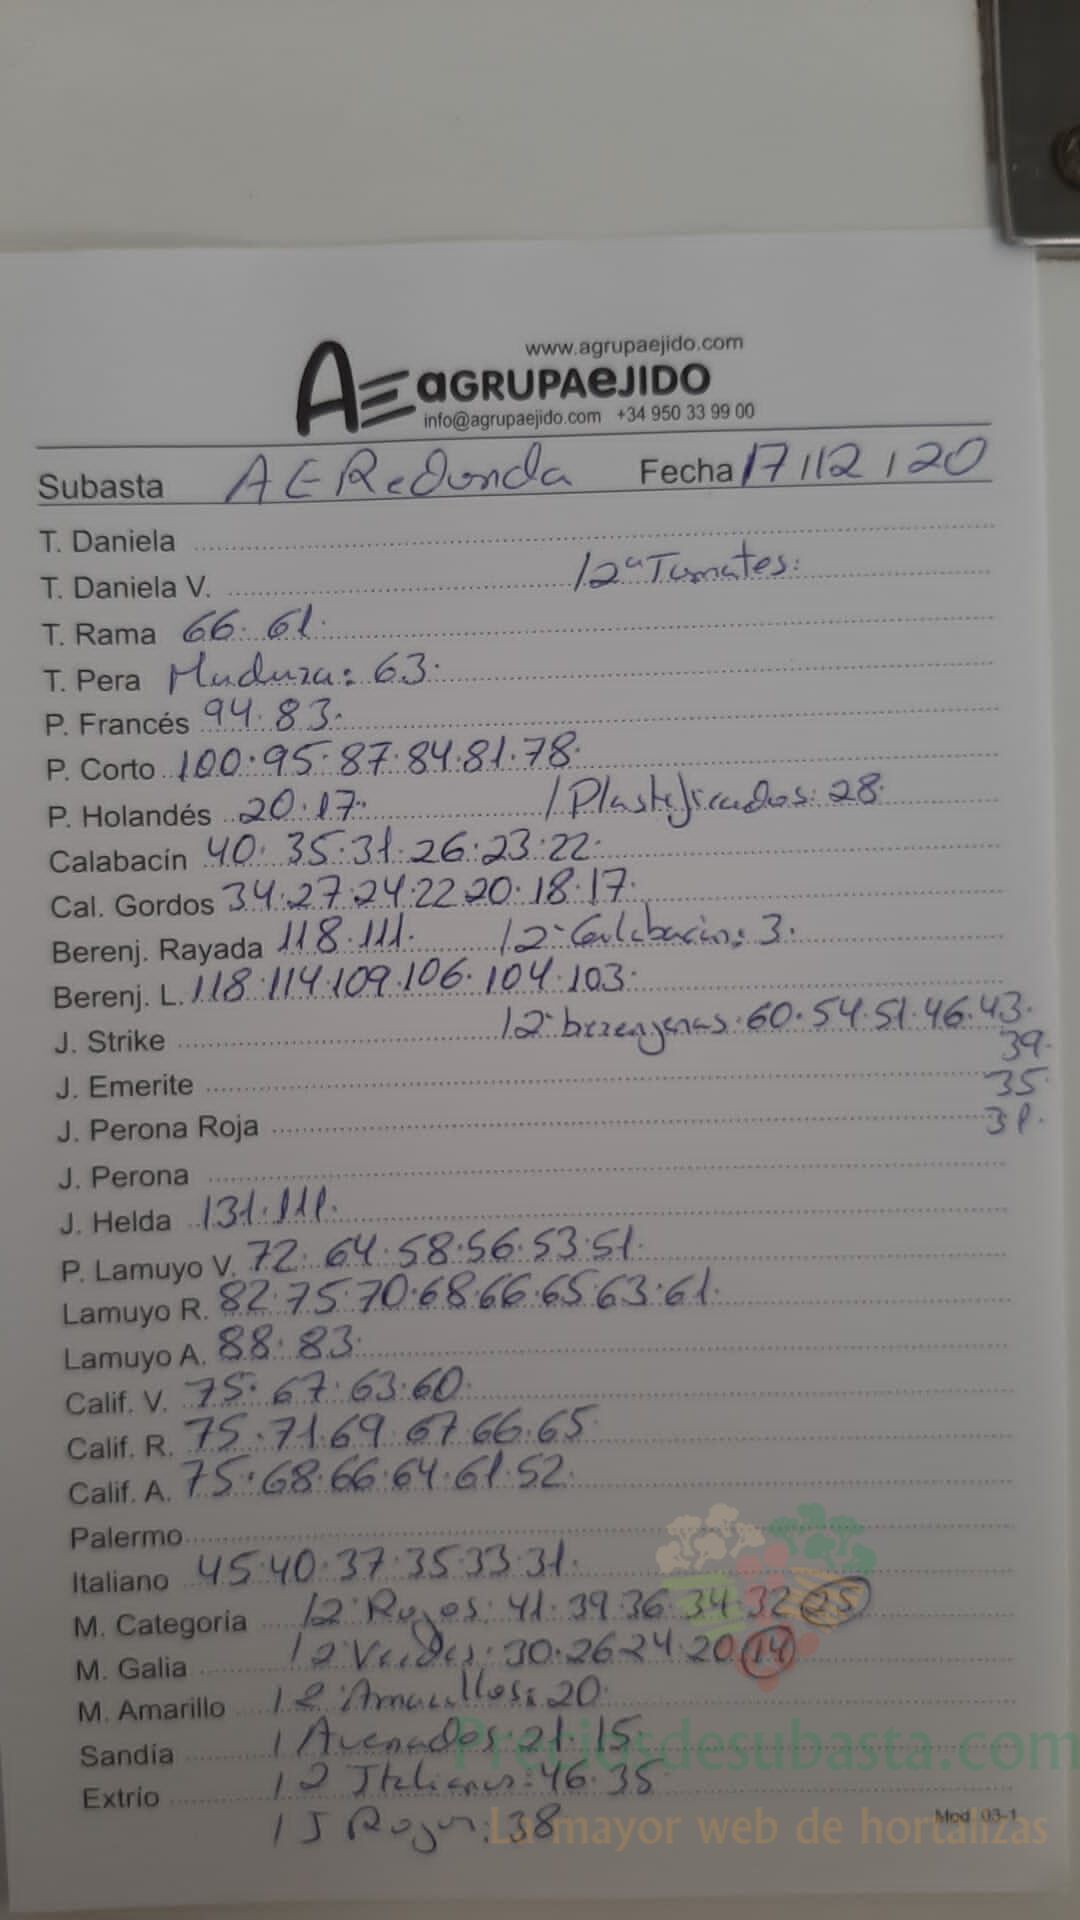 www.agrupaejido.com
AE aGRUPAeJIDO
info@agrupaejido.com +34 950 33 99 00
Subasta AE Redonda Fecha 17/12/20
T. Daniela
T. Daniela V. /2ª Tomates:
T. Rama 66. 61.
T. Pera Madura: 63.
P. Francés 94. 83.
P. Corto 100. 95. 87. 84. 81. 78.
P. Holandés 20. 17. / Plastificados: 28.
Calabacín 40. 35. 31. 26. 23. 22.
Cal. Gordos 34. 27. 24. 22 20. 18. 17.
Berenj. Rayada 118. 111. /2ª Calabacin: 3.
Berenj. L. 118. 114. 109. 106. 104. 103.
J. Strike /2ª berenjenas. 60. 54. 51. 46. 43.
39.
J. Emerite 35.
J. Perona Roja 31.
J. Perona
J. Helda 131. 111.
P. Lamuyo V. 72. 64. 58. 56. 53. 51.
Lamuyo R. 82. 75. 70. 68. 66. 65. 63. 61.
Lamuyo A. 88. 83.
Calif. V. 75. 67. 63. 60.
Calif. R. 75. 71. 69. 67. 66. 65.
Calif. A. 75. 68. 66. 64. 61. 52.
Palermo
Italiano 45. 40. 37. 35. 33. 31.
M. Categoría /2ª Rojos: 41. 39. 36. 34. 32. 25.
M. Galia /2 Verdes: 30. 26. 24. 20. 14
M. Amarillo /2 Amarillos: 20.
Sandía / Asurados 21. 15.
Extrío /2 Italianos: 46. 35.
/ I Rojos: 38
Preciosdesubasta.com
La mayor web de hortalizas
Mod. 03-1